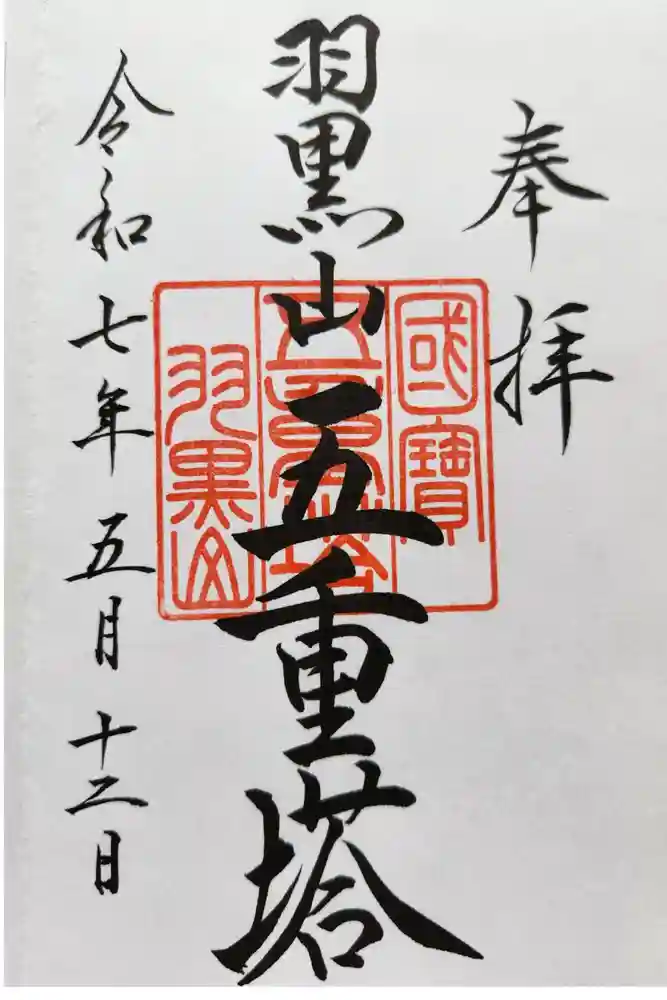 奉拝
羽黒山五重塔
令和七年五月十二日
國寳
五重塔
羽黒山